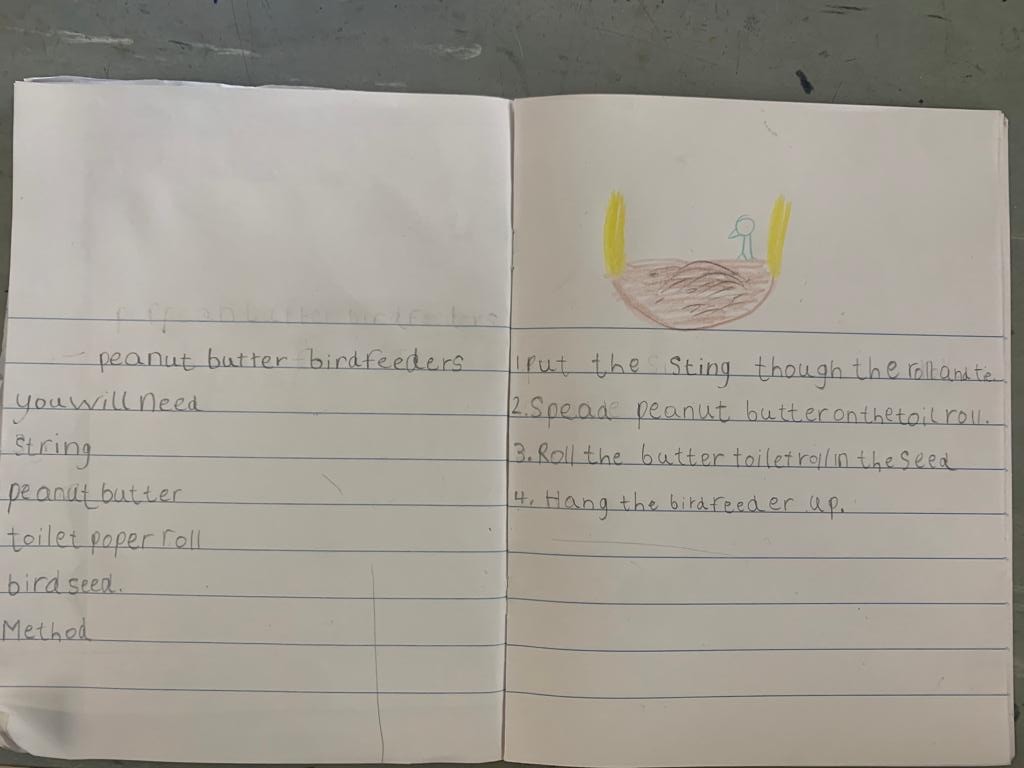 peanut butter birdfeeders
you will need
String
peanut butter
toilet paper roll
bird seed.
Method
1 Put the Sting though the roll and te
2. Spead peanut butter on the toil roll.
3. Roll the butter toilet roll in the seed
4. Hang the birdfeeder up.